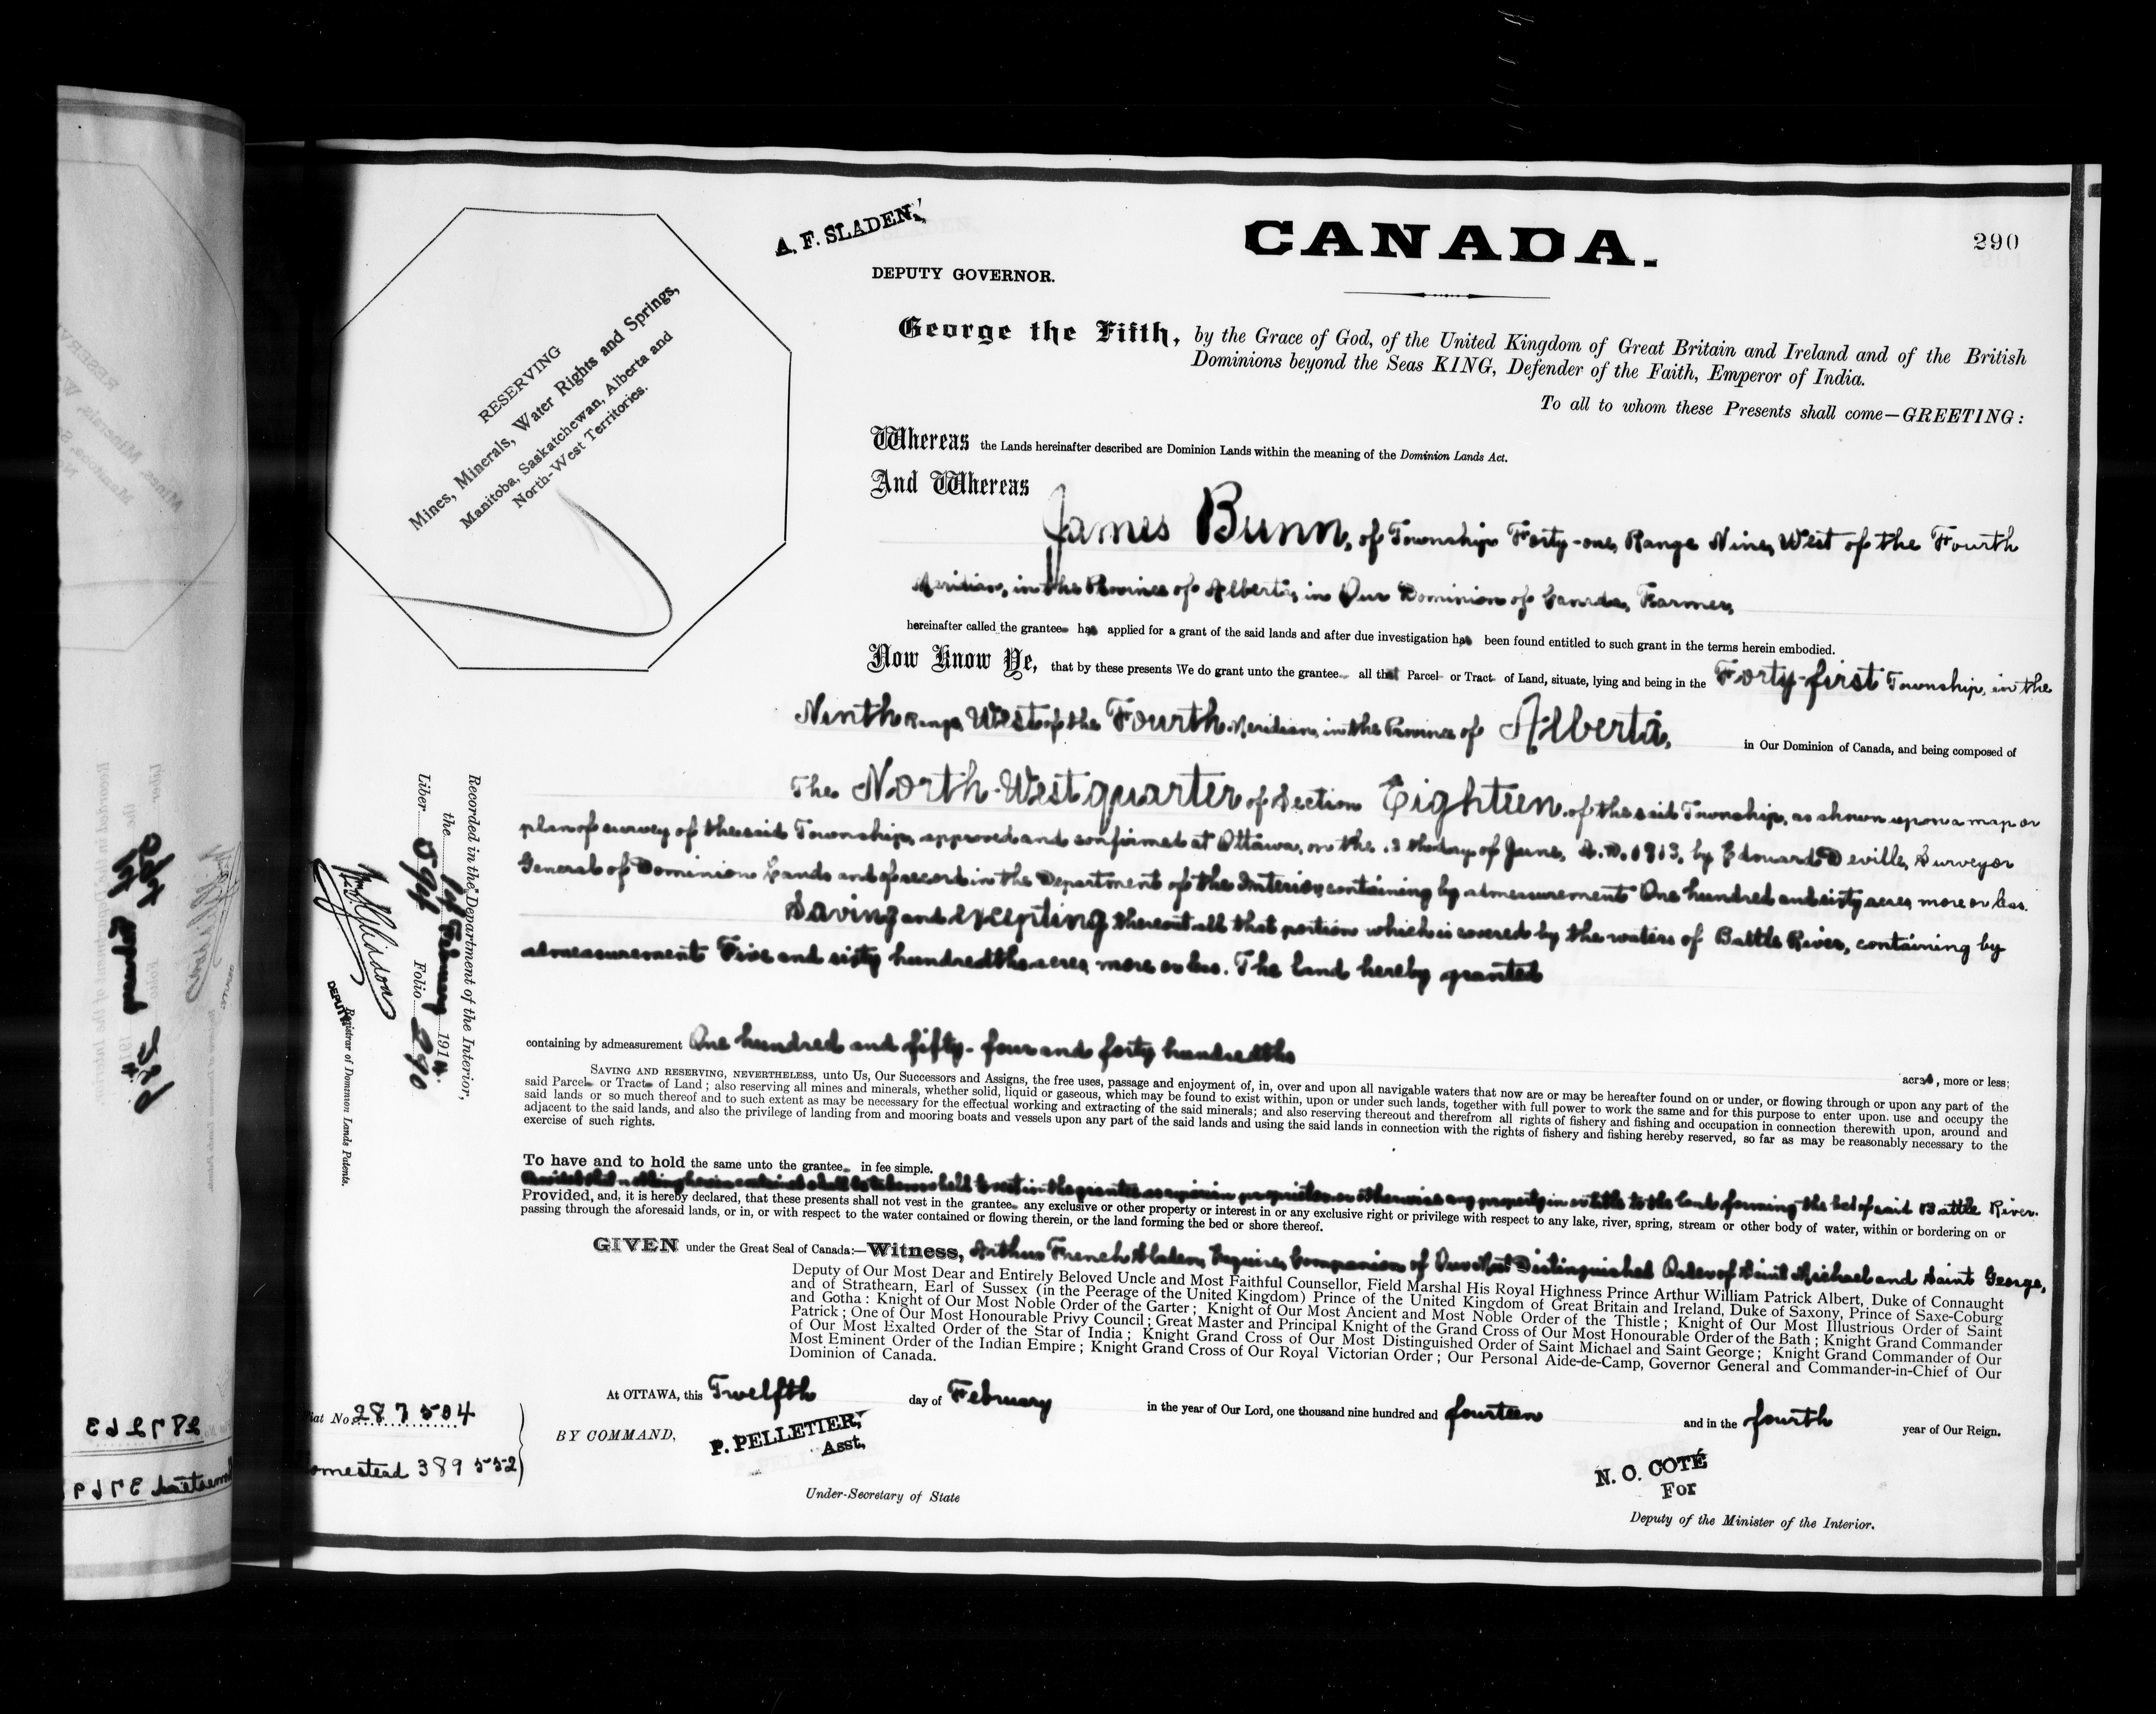 A. F. SLADEN,
DEPUTY GOVERNOR.
CANADA.
290
RESERVING
Mines, Minerals, Water Rights and Springs,
Manitoba, Saskatchewan, Alberta and
North-West Territories.
George the Fifth, by the Grace of God, of the United Kingdom of Great Britain and Ireland and of the British
Dominions beyond the Seas KING, Defender of the Faith, Emperor of India.
To all to whom these Presents shall come—GREETING:
Whereas the Lands hereinafter described are Dominion Lands within the meaning of the Dominion Lands Act.
And Whereas
James Bunn, of Township Forty-one, Range Nine, West of the Fourth
Meridian, in the Province of Alberta, in Our Dominion of Canada, Farmer,
hereinafter called the grantee has applied for a grant of the said lands and after due investigation has been found entitled to such grant in the terms herein embodied.
Now Know Ye, that by these presents We do grant unto the grantee all that Parcel or Tract of Land, situate, lying and being in the Forty-first Township, in the
Ninth Range, West of the Fourth Meridian, in the Province of Alberta, in Our Dominion of Canada, and being composed of
The North-West quarter of Section Eighteen, of the said Township, as shown upon a map or
plan of survey of the said Township, approved and confirmed at Ottawa, on the day of June, A.D. 1913, by Edouard Deville, Surveyor
General of Dominion Lands and of record in the Department of the Interior, containing by admeasurement One hundred and sixty acres, more or less.
Saving and excepting thereout all that portion which is covered by the waters of Battle River, containing by
admeasurement Five and sixty hundredths acres, more or less. The land hereby granted
containing by admeasurement One hundred and fifty-four and forty hundredths
acres, more or less;
SAVING AND RESERVING, NEVERTHELESS, unto Us, Our Successors and Assigns, the free uses, passage and enjoyment of, in, over and upon all navigable waters that now are or may be hereafter found on or under, or flowing through or upon any part of the
said Parcel or Tract of Land; also reserving all mines and minerals, whether solid, liquid or gaseous, which may be found to exist within, upon or under such lands, together with full power to work the same and for this purpose to enter upon, use and occupy the
said lands or so much thereof and to such extent as may be necessary for the effectual working and extracting of the said minerals; and also reserving thereout and therefrom all rights of fishery and fishing and occupation in connection therewith upon, around and
adjacent to the said lands, and also the privilege of landing from and mooring boats and vessels upon any part of the said lands and using the said lands in connection with the rights of fishery and fishing hereby reserved, so far as may be reasonably necessary to the
exercise of such rights.
To have and to hold the same unto the grantee in fee simple.
Provided that nothing herein contained shall be taken or held to vest in the grantee as riparian proprietor or otherwise any property in or title to the land forming the bed of said Battle River.
Provided, and, it is hereby declared, that these presents shall not vest in the grantee any exclusive or other property or interest in or any exclusive right or privilege with respect to any lake, river, spring, stream or other body of water, within or bordering on or
passing through the aforesaid lands, or in, or with respect to the water contained or flowing therein, or the land forming the bed or shore thereof.
GIVEN under the Great Seal of Canada:—Witness, Arthur French Sladen, Esquire, Companion of Our Most Distinguished Order of Saint Michael and Saint George,
Deputy of Our Most Dear and Entirely Beloved Uncle and Most Faithful Counsellor, Field Marshal His Royal Highness Prince Arthur William Patrick Albert, Duke of Connaught
and of Strathearn, Earl of Sussex (in the Peerage of the United Kingdom) Prince of the United Kingdom of Great Britain and Ireland, Duke of Saxony, Prince of Saxe-Coburg
and Gotha: Knight of Our Most Noble Order of the Garter; Knight of Our Most Ancient and Most Noble Order of the Thistle; Knight of Our Most Illustrious Order of Saint
Patrick; One of Our Most Honourable Privy Council; Great Master and Principal Knight of the Grand Cross of Our Most Honourable Order of the Bath; Knight Grand Commander
of Our Most Exalted Order of the Star of India; Knight Grand Cross of Our Most Distinguished Order of Saint Michael and Saint George; Knight Grand Commander of Our
Most Eminent Order of the Indian Empire; Knight Grand Cross of Our Royal Victorian Order; Our Personal Aide-de-Camp, Governor General and Commander-in-Chief of Our
Dominion of Canada.
At OTTAWA, this Twelfth day of February in the year of Our Lord, one thousand nine hundred and fourteen and in the fourth year of Our Reign.
BY COMMAND,
P. PELLETIER,
Asst.
Under-Secretary of State
N. O. COTÉ
For
Deputy of the Minister of the Interior.
Recorded in the Department of the Interior,
the 14 February 1914
Liber 594 Folio 290
DEPUTY
Registrar of Dominion Lands Patents.
iat No. 287504
omestead 389552